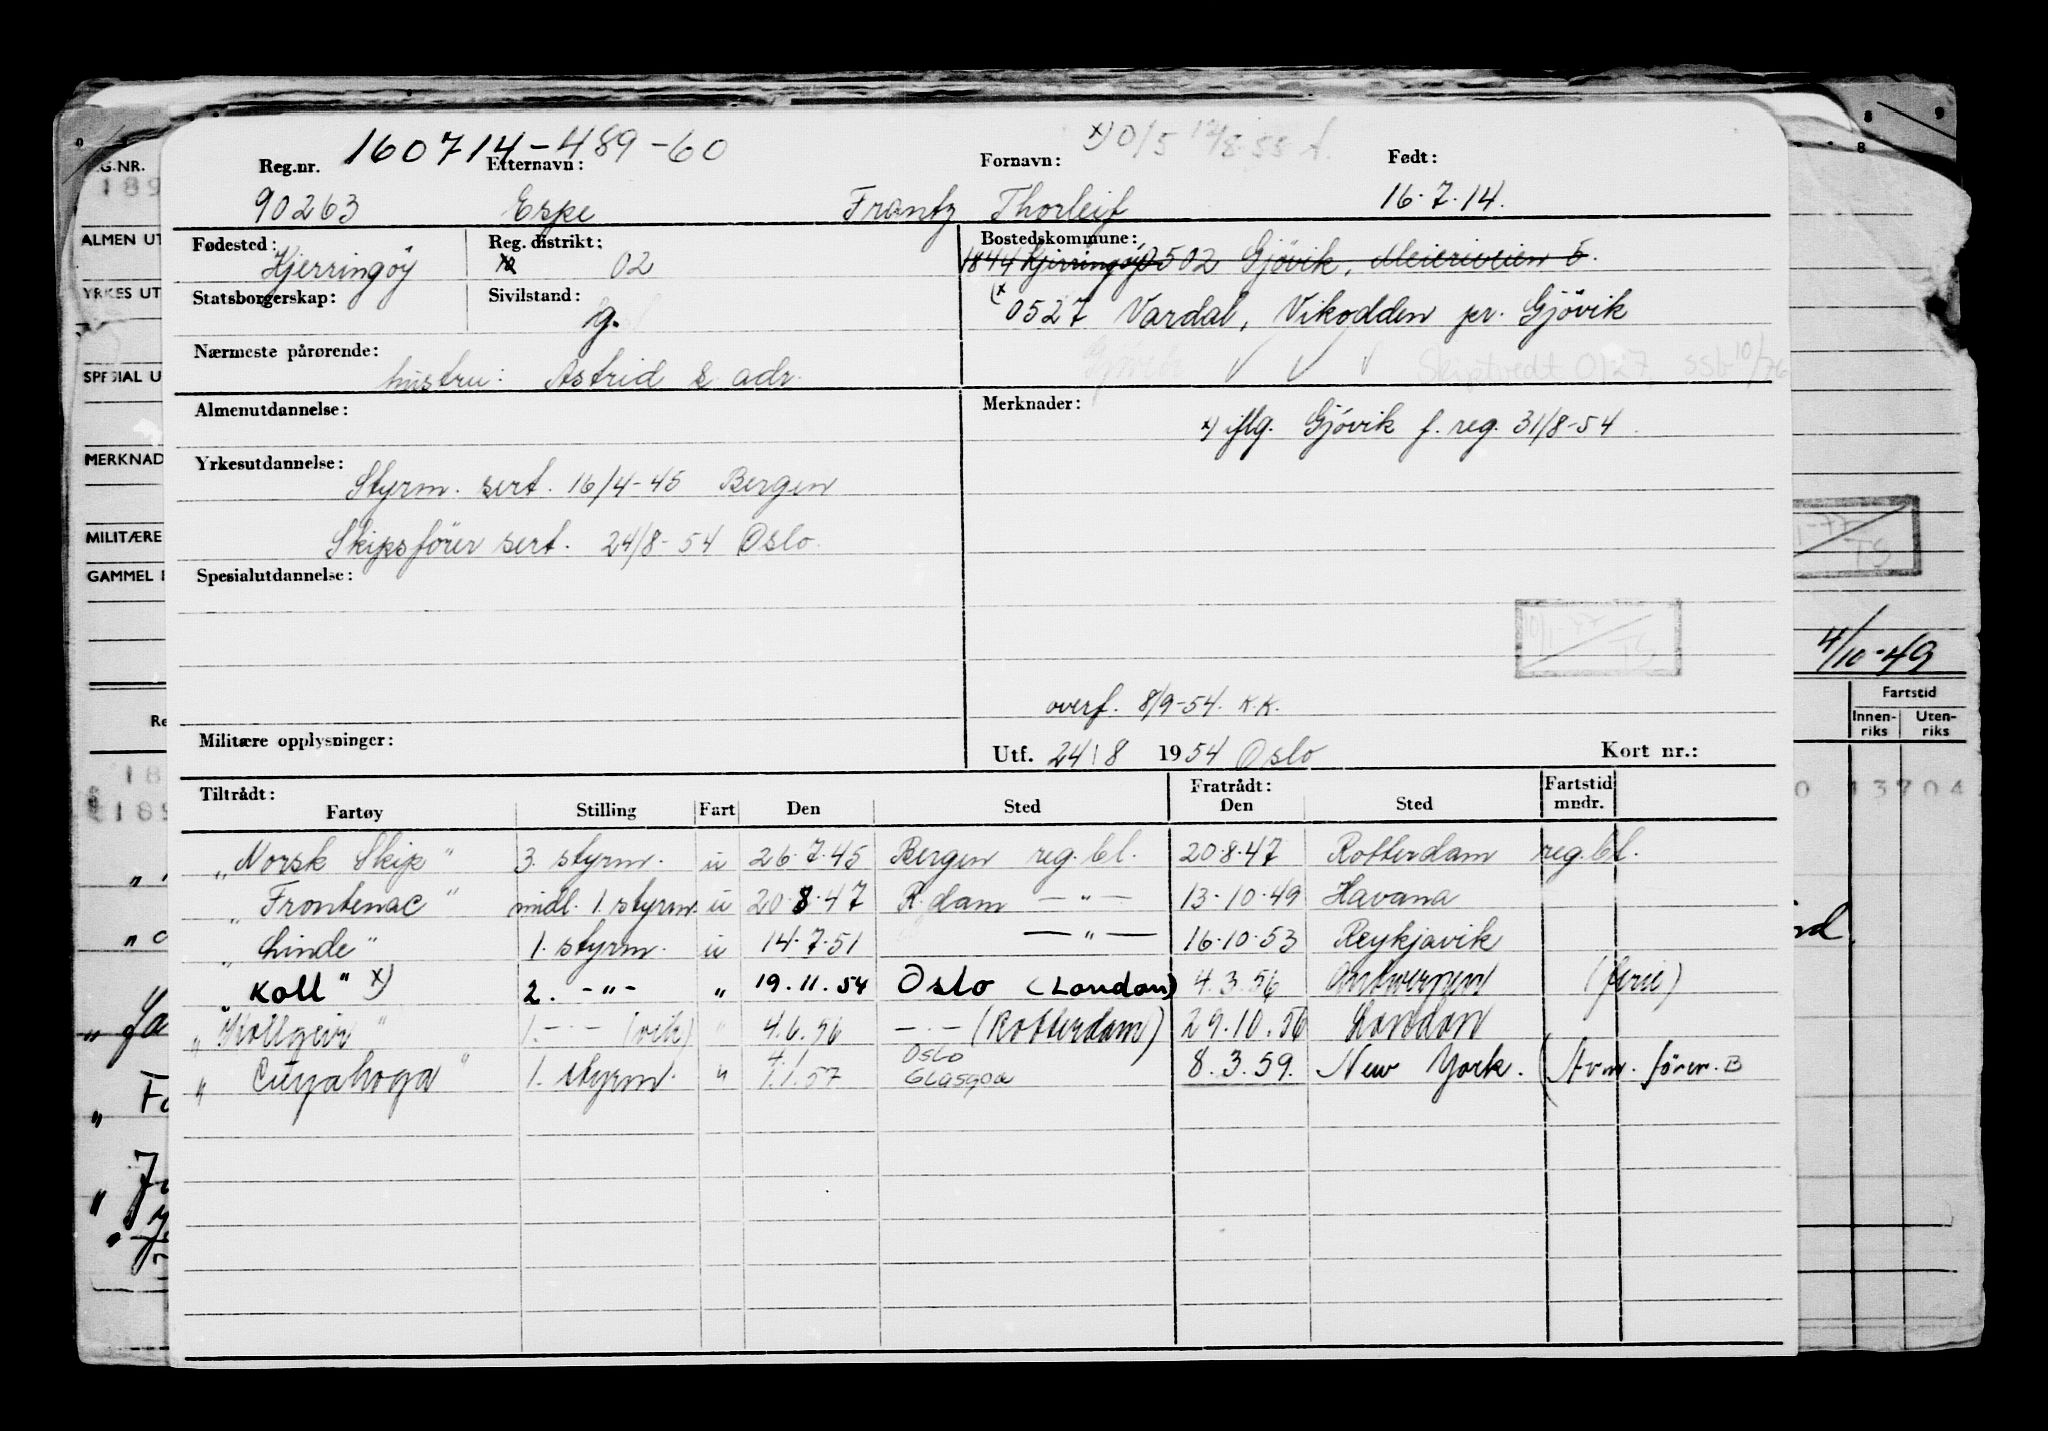 160714-489-60 x) 0/5 12/8-55 A.
Reg.nr. Etternavn: Fornavn: Født:
90263 Espe Frantz Thorleif 16.7.14.
Fødested: Kjerringøy Reg. distrikt: 02 Bostedskommune: 1844 Kjerringøy 0502 Gjøvik, Meieriveien 5.
Statsborgerskap: Sivilstand: g. x 0527 Vardal, Vikodden pr. Gjøvik
Nærmeste pårørende: hustru: Astrid s. adr. Gjøvik Skiptvedt 0127 ssb 10/76
Almenutdannelse: Merknader: x) iflg. Gjøvik f. reg. 31/8-54.
Yrkesutdannelse: Styrm. sert. 16/4-45 Bergen
Skipsfører sert. 24/8-54 Oslo.
Spesialutdannelse:
10/1-77 TS
overf. 8/9-54. K.K.
Militære opplysninger: Utf. 24/8 1954 Oslo Kort nr.:
Tiltrådt: Fratrådt: Fartstid
Fartøy Stilling Fart Den Sted Den Sted mndr.
"Norsk Skip" 3. styrm. u 26.7.45 Bergen reg. bl. 20.8.47 Rotterdam reg. bl.
"Frontenac" midl. 1. styrm. u 20.8.47 R.dam — " — 13.10.49 Havana
"Linde" 1. styrm. u 14.7.51 — " — 16.10.53 Reykjavik
"Koll" x) 2. -"- " 19.11.54 Oslo (London) 4.3.56 Antwerpen (ferie)
"Kollgeir" 1. -"- (vik) " 4.6.56 -"- (Rotterdam) 29.10.56 London
"Cuyahoga" 1. styrm. " 7.1.57 Oslo Glasgow 8.3.59. New York. (Avm. fører. B
REG.NR.
189
ALMEN UT
YRKES UT
SPESIAL U
MERKNAD
MILITÆRE
GAMMEL
4/10-49
Fartstid
Innen-riks Uten-riks
13704